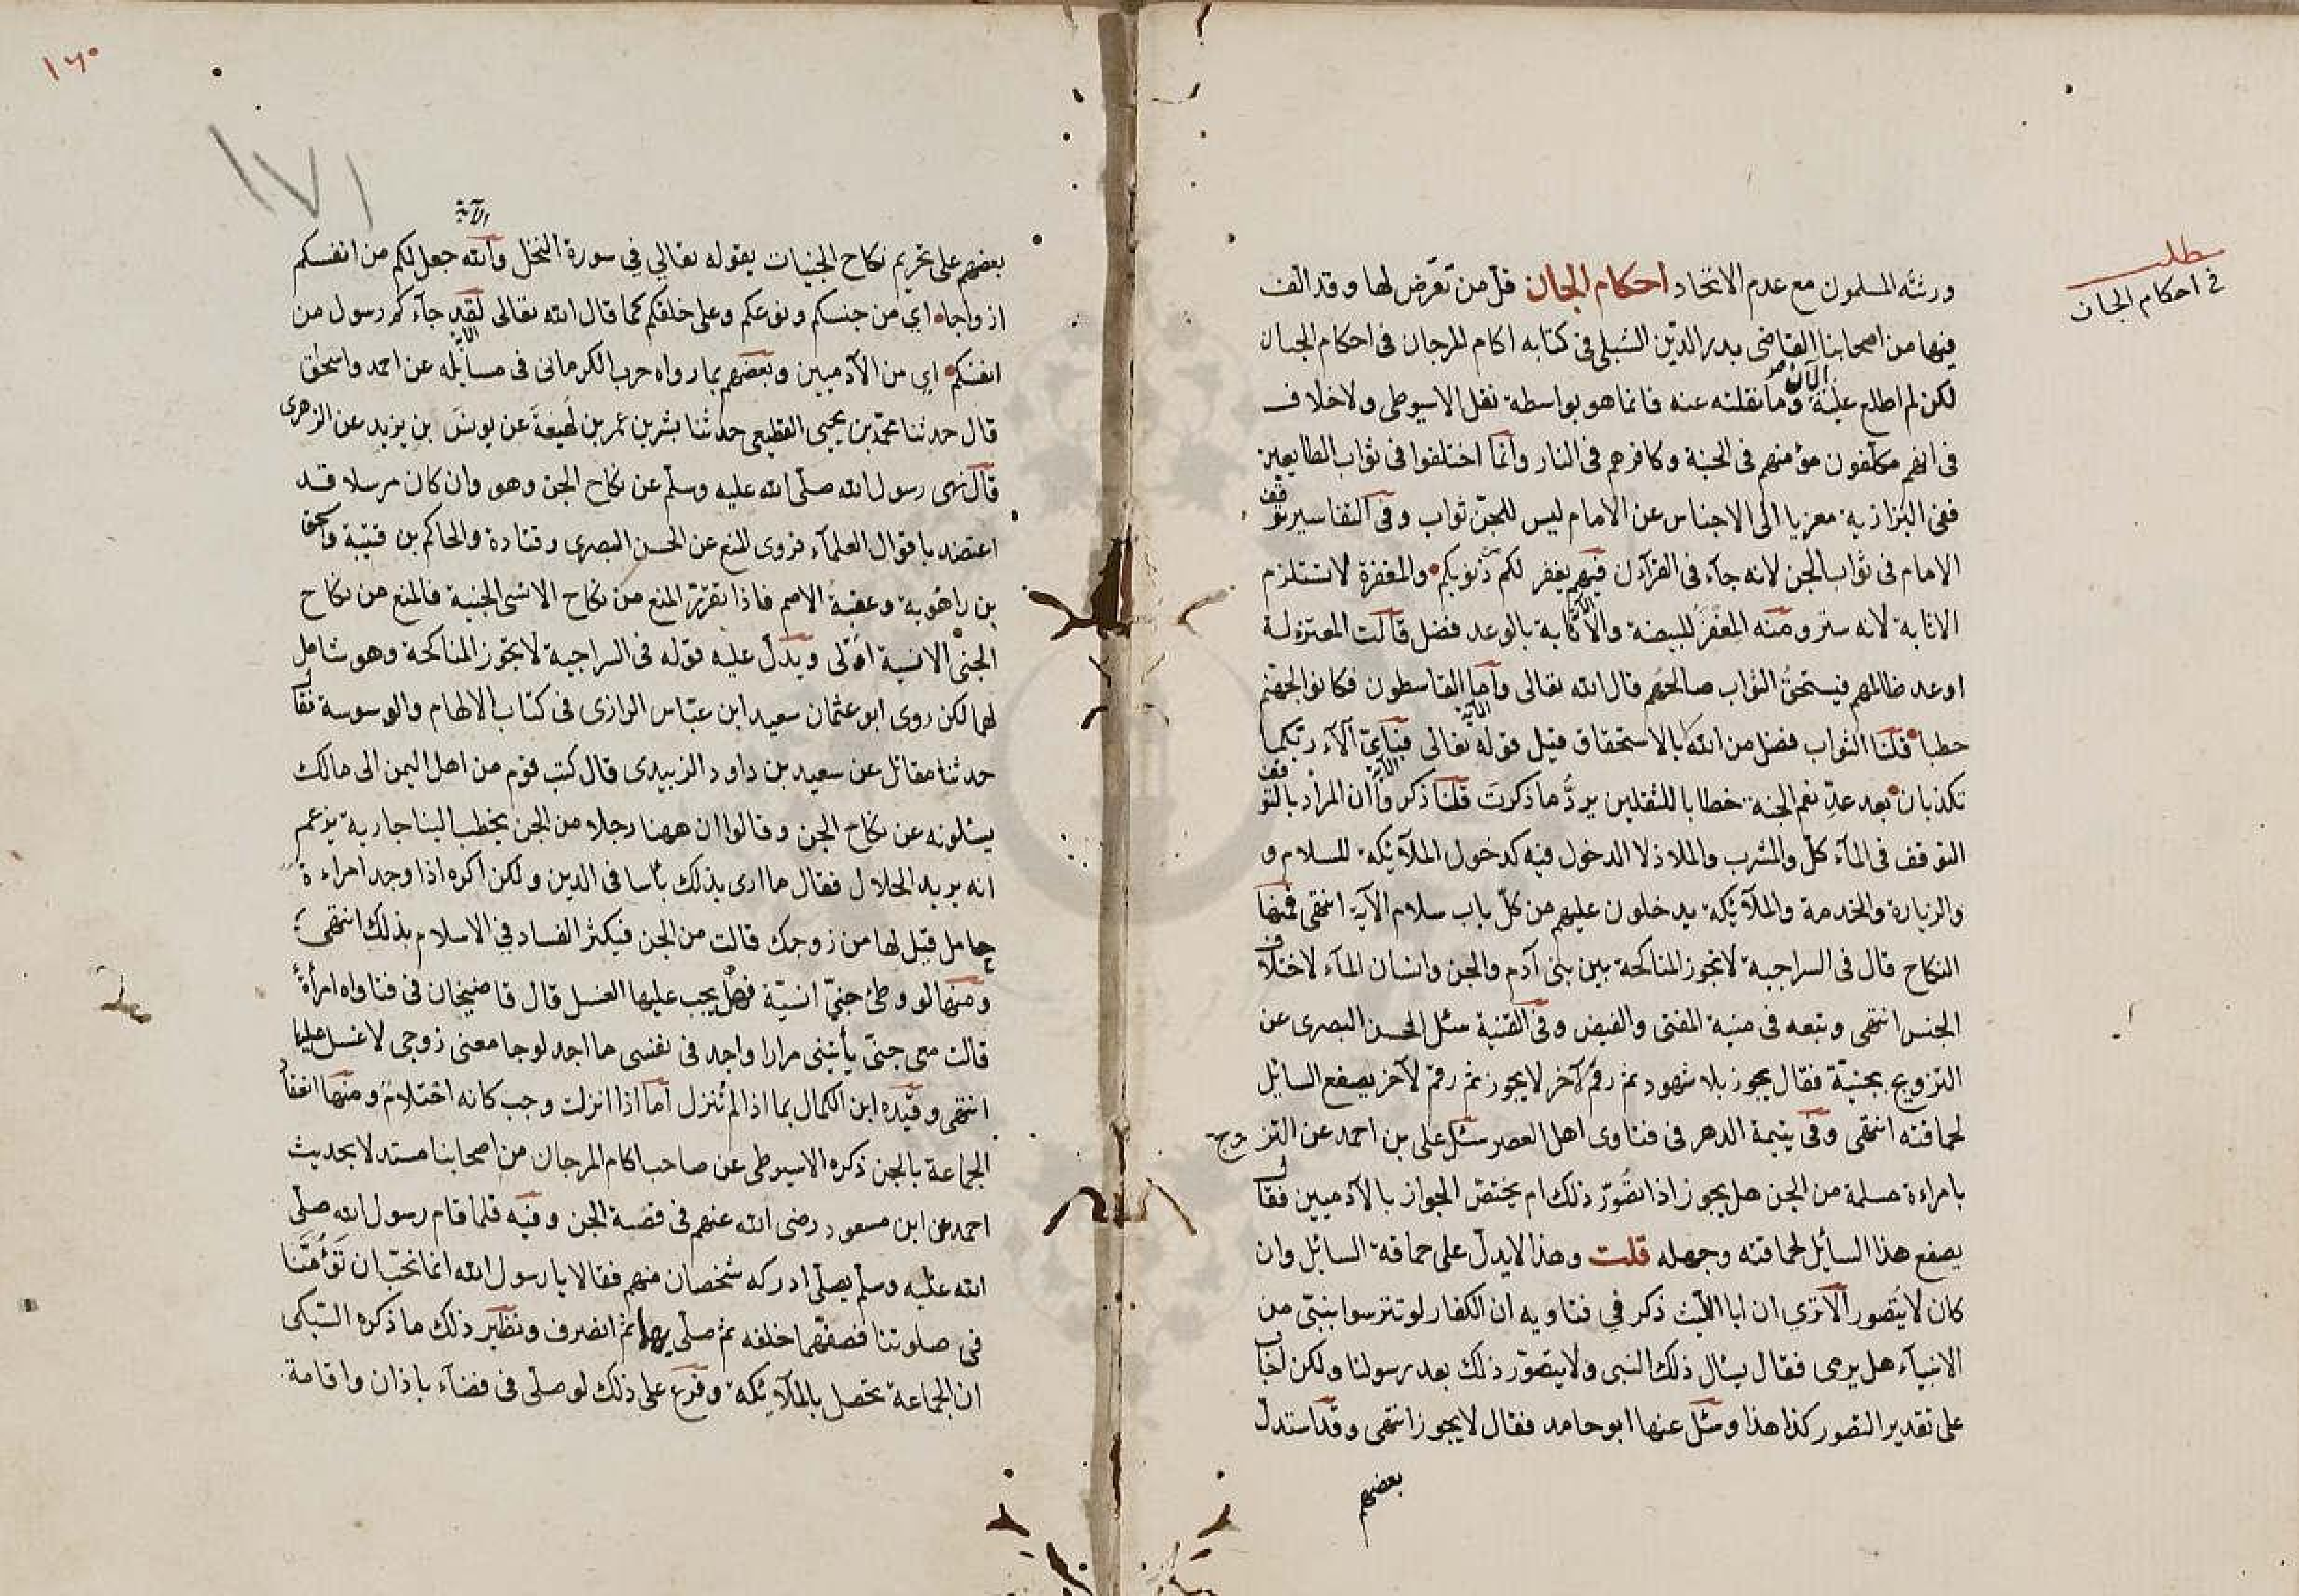 مطلب
في احكام الجان
ورثته المسلمون مع عدم الاتحاد احكام الجان قل من تعرض لها وقد الف
فيها من اصحابنا القاضى بدر الدين الشبلى فى كتابه اكام المرجان فى احكام الجان
لكن لم اطلع عليه الآن وما نقلته عنه فانما هو بواسطة نقل الاسيوطى ولا خلاف
فى انهم مكلفون مؤمنهم فى الجنة وكافرهم فى النار وانما اختلفوا فى ثواب الطايعين
ففى البزازية معزيا الى الاجناس عن الامام ليس للجن ثواب وفى التفاسير توقف
الامام فى ثواب الجن لانه جآء فى القرآن فيهم يغفر لكم ذنوبكم والمغفرة لا تستلزم
الاثابة لانه ستر ومنه المغفر للبيضة والاثابة بالوعد فضل قالت المعتزلة
اوعد ظالمهم فيستحق الثواب صالحهم قال الله تعالى واما القاسطون فكانوا لجهنم
حطبا قلنا الثواب فضل من الله لا بالاستحقاق قيل قوله تعالى فباىّ آلآء ربكما الآية
تكذبان بعد عدّ نعم الجنة خطابا للثقلين يردّ ما ذكرت قلنا ذكروا ان المراد بالتوقف
التوقف فى المآء كل والمشرب والملاذ لا الدخول فيه كدخول الملآئكة للسلام و
والزيارة والخدمة والملآئكة يدخلون عليهم من كل باب سلام الآية انتهى فمنها
النكاح قال فى السراجية لا تجوز المناكحة بين بنى آدم والجن وانسان المآء لاختلاف
الجنس انتهى وتبعه فى منية المفتى والفيض وفى القنية سئل الحسن البصرى عن
التزويج بجنية فقال يجوز بلا شهود ثم رقم لآخر لا يجوز ثم رقم لآخر يصفع السائل
لحماقته انتهى وفى يتيمة الدهر فى فتاوى اهل العصر سئل على بن احمد عن التزويج
بامراءة مسلمة من الجن هل يجوز اذا تصور ذلك ام يختص الجواز بالآدميين فقال
يصفع هذا السائل لحماقته وجهله قلت وهذا لا يدل على حماقة السائل وان
كان لا يتصور الا ترى ان ابا الليث ذكر في فتاويه ان الكفار لو تترسوا بنبى من
الانبيآء هل يرمى فقال يسال ذلك النبى ولا يتصور ذلك بعد رسولنا ولكن اجاب
على تقدير التصور كذا هذا وسئل عنها ابو حامد فقال لا يجوز انتهى وقد استدل
بعضهم
١٦٠
١٧١
بعضهم على تحريم نكاح الجنيات بقوله تعالي في سورة النحل والله جعل لكم من انفسكم الآية
ازواجا اي من جنسكم ونوعكم وعلى خلقكم كما قال الله تعالى لقد جآءكم رسول من
انفسكم الآية اي من الآدميين وبعضهم بما رواه حرب الكرمانى فى مسائله عن احمد واسحق
قال حدثنا محمد بن يحيى القطيعى حدثنا بشر بن عمر بن لهيعة عن يونس بن يزيد عن الزهرى
قال نهى رسول الله صلى الله عليه وسلم عن نكاح الجن وهو وان كان مرسلا قد
اعتضد باقوال العلمآء فروى المنع عن الحسن البصرى وقتادة والحاكم بن قتيبة واسحق
بن راهوية وعقبة الاصم فاذا تقرر المنع من نكاح الانسى الجنية فالمنع من نكاح
الجنى الانسية اولى ويدل عليه قوله فى السراجية لا تجوز المناكحة وهو شامل
لهما لكن روى ابو عثمان سعيد ابن عباس الرازى فى كتاب الالهام والوسوسة فقال
حدثنا مقاتل عن سعيد بن داود الزبيدى قال كتب قوم من اهل اليمن الى مالك
يسئلونه عن نكاح الجن وقالوا ان ههنا رجلا من الجن يخطب الينا جارية يزعم
انه يريد الحلال فقال ما ارى بذلك بأسا فى الدين ولكن اكره اذا وجد امراءة
حامل قيل لها من زوجك قالت من الجن فيكثر الفساد في الاسلام بذلك انتهى
ومنها لو وطئ جنىّ انسيّة فهل يجب عليها الغسل قال قاضيخان فى فتاواه امرأة
قالت معى جنىّ يأتينى مرارا واجد فى نفسى ما اجد لو جامعنى زوجى لا غسل عليها
انتهى وقيده ابن الكمال بما اذا لم تنزل اما اذا انزلت وجب كانه احتلام ومنها انعقاد
الجماعة بالجن ذكره الاسيوطى عن صاحب اكام المرجان من اصحابنا مستدلا بحديث
احمد عن ابن مسعود رضى الله عنهم فى قصة الجن وفيه فلما قام رسول الله صلى
الله عليه وسلم يصلى ادركه شخصان منهم فقالا يا رسول الله انا نحبّ ان تؤمّنا
فى صلوتنا فصفّهما خلفه ثم صلى بهما ثم انصرف ونظير ذلك ما ذكره السّبكى
ان الجماعة تحصل بالملآئكة وفرع على ذلك لو صلى فى فضآء باذان واقامة